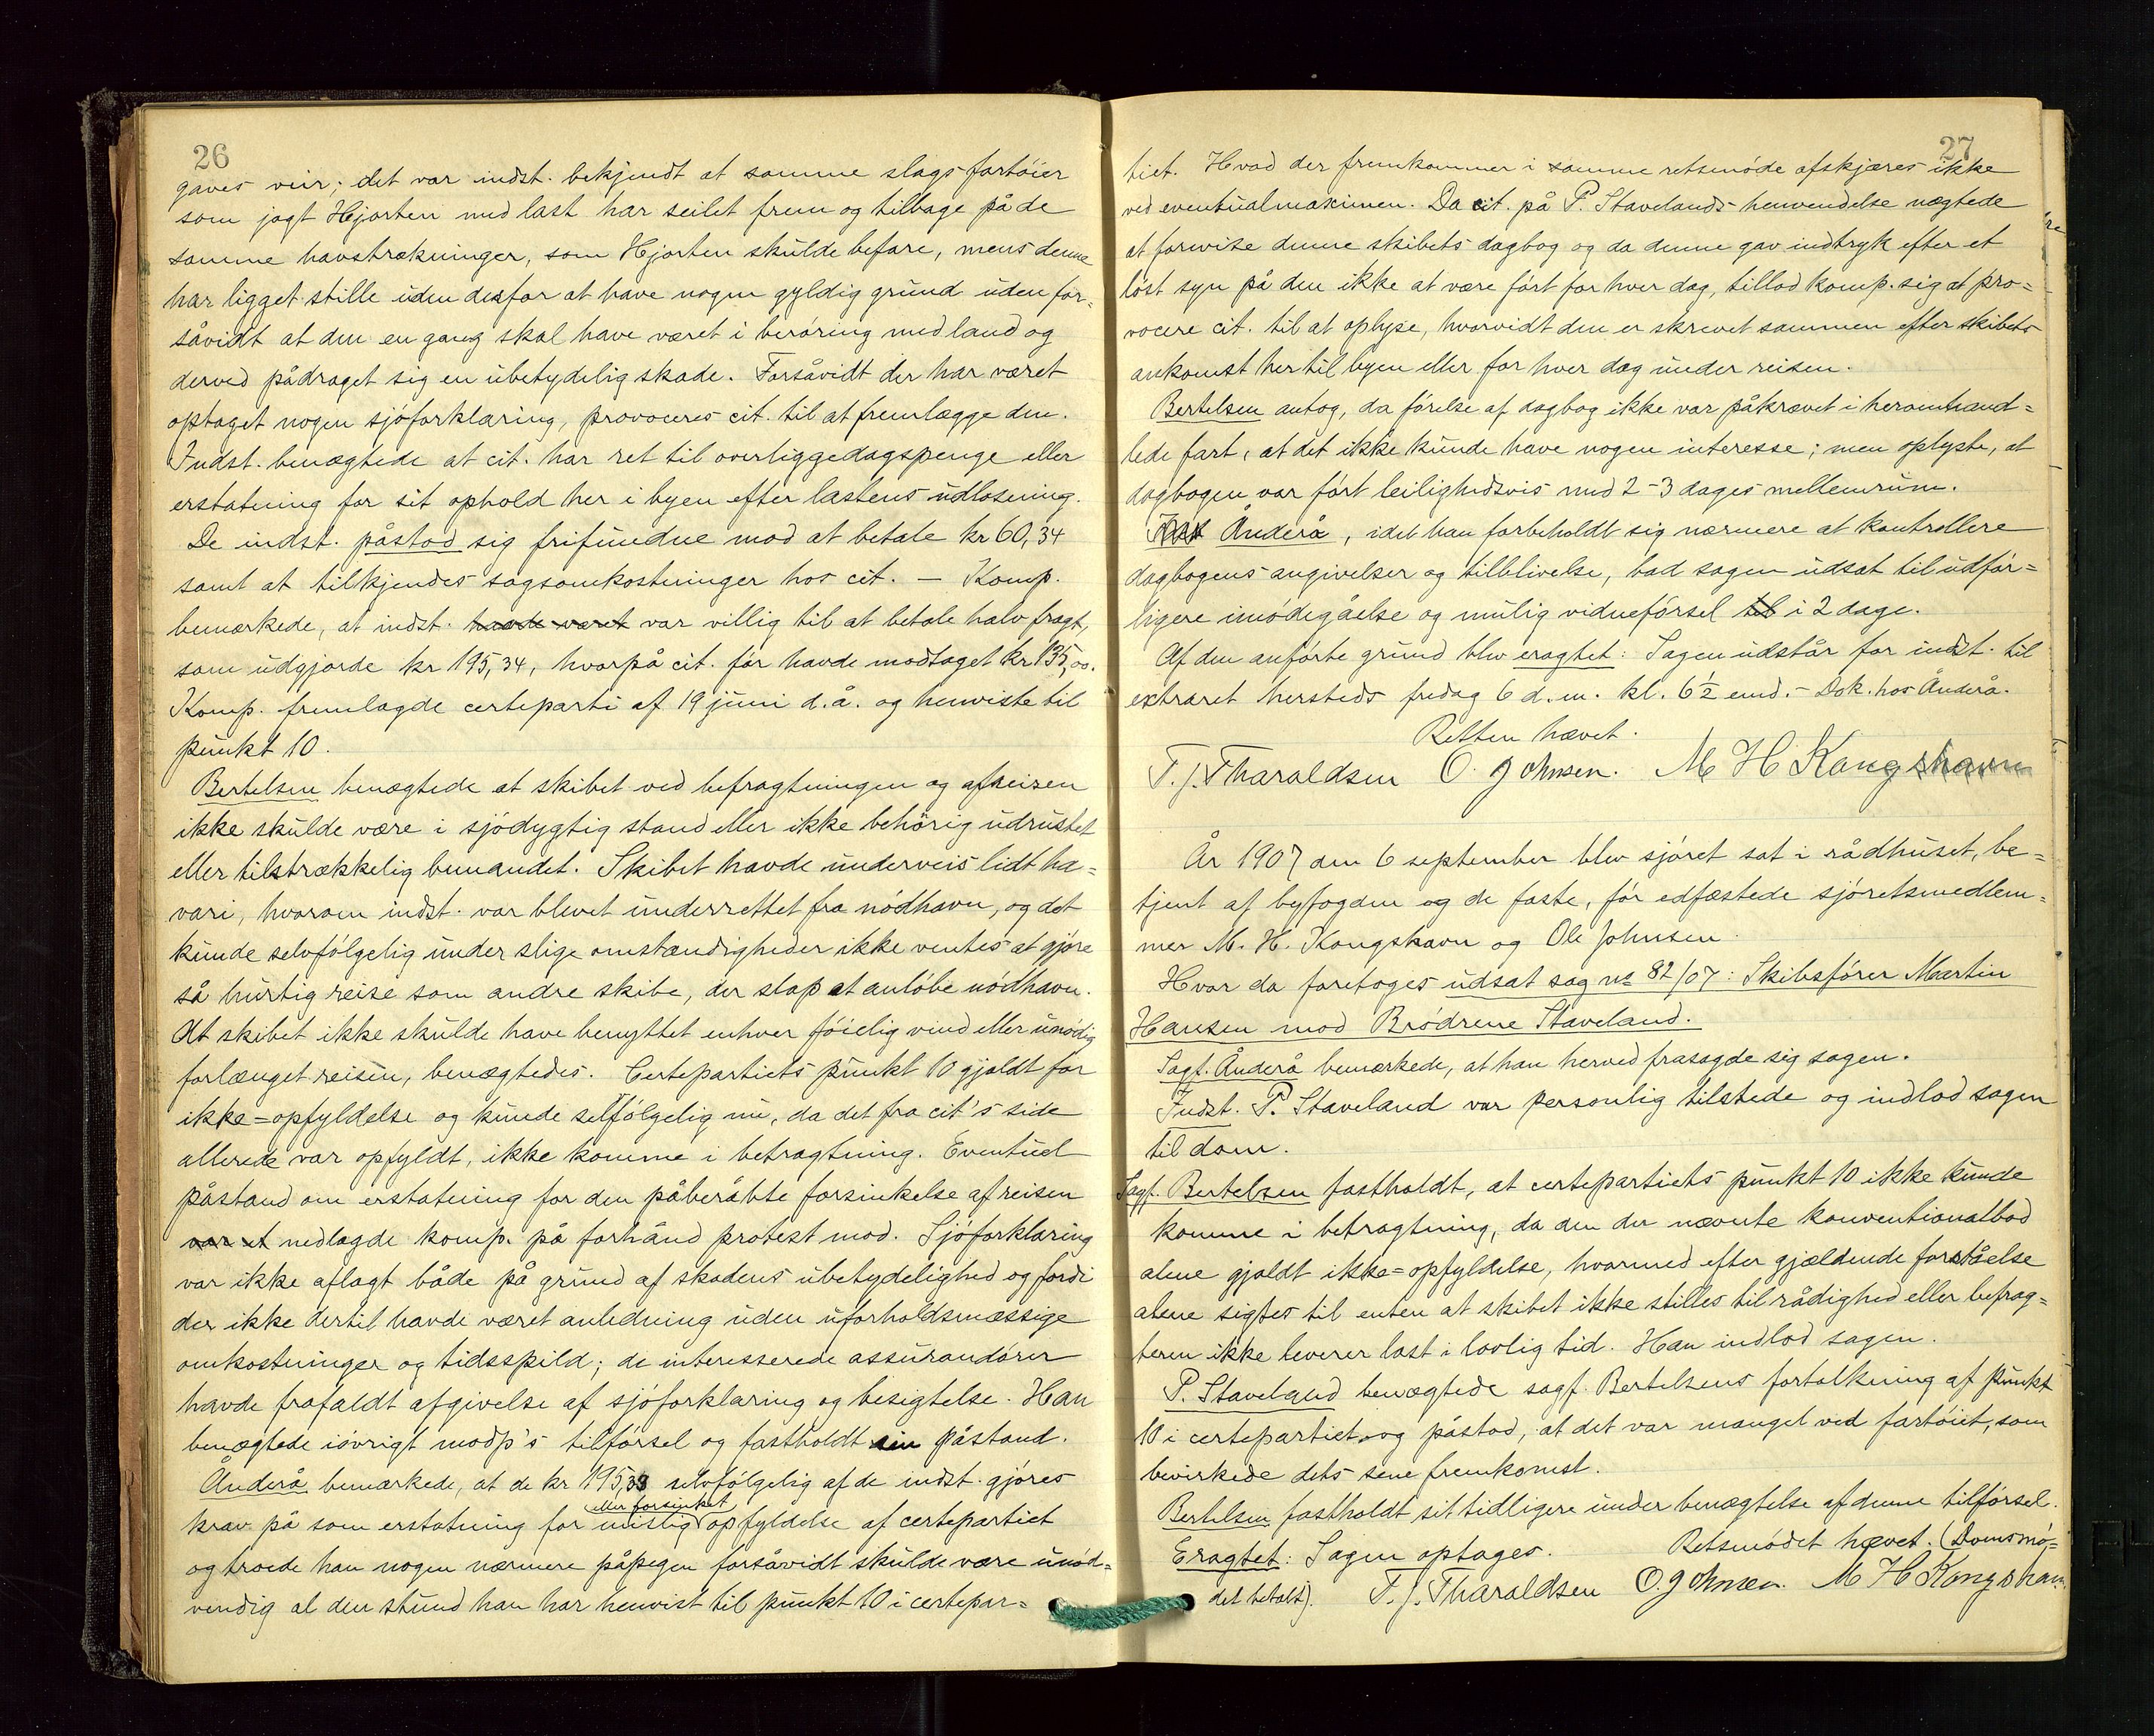 26
gaves veir; det var indst. bekjendt at samme slags fartöier
som jagt Hjorten med last har seilet frem og tilbage på de
samme havstrækninger, som Hjorten skulde befare, mens denne
har ligget stille uden desfor at have nogen gyldig grund uden for-
såvidt at den en gang skal have været i beröring med land og
derved pådraget sig en ubetydelig skade. Forsåvidt der har været
optaget nogen sjöforklaring, provoceres cit. til at fremlægge den.
Indst. benægtede at cit. har ret til overliggedagspenge eller
erstatning for sit ophold her i byen efter lastens udlosning.
De indst. påstod sig frifundne mod at betale kr 60,34
samt at tilkjendes sagsomkostninger hos cit. — Komp.
bemærkede, at indst. havde været var villig til at betale halv fragt,
som udgjorde kr 195,34, hvorpå cit. för havde modtaget kr 135,00.
Komp. fremlagde certeparti af 19 juni d.å. og henviste til
punkt 10.
Bertelsen benægtede at skibet ved befragtningen og afreisen
ikke skulde være i sjödygtig stand eller ikke behörig udrustet
eller tilstrækkelig bemandet. Skibet havde underveis lidt ha-
vari, hvorom indst. var blevet underrettet fra nödhavn, og det
kunde selvfölgelig under slige omstændigheder ikke ventes at gjöre
så hurtig reise som andre skibe, der slap at anlöbe nödhavn.
At skibet ikke skulde have benyttet enhver föielig vind eller unödig
forlænget reisen, benægtedes. Certepartiets punkt 10 gjaldt for
ikke=opfyldelse og kunde selfölgelig nu, da det fra cit's side
allerede var opfyldt, ikke komme i betragtning. Eventuel
påstand om erstatning for den påberåbte forsinkelse af reisen
var et nedlagde komp. på forhånd protest mod. Sjöforklaring
var ikke aflagt både på grund af skadens ubetydelighed og fordi
der ikke dertil havde været anledning uden uforholdsmæssige
omkostninger og tidsspild; de interesserede assurandörer
havde frafaldt afgivelse af sjöforklaring og besigtelse. Han
benægtede iövrigt modp's tilförsel og fastholdt sin påstand.
Änderå bemærkede, at de kr 195,39 selvfölgelig af de indst. gjöres
eller forsinket
krav på som erstatning for mislig opfyldelse af certepartiet
og troede han nogen nærmere påpegen forsåvidt skulde være unöd-
vendig al den stund han har henvist til punkt 10 i certepar-
27
tiet. Hvad der fremkommer i samme retsmöde afskjæres ikke
ved eventualmaximen. Da cit. på P. Stavelands henvendelse nægtede
at forevise denne skibets dagbog og da denne gav indtryk efter et
löst syn på den ikke at være fört for hver dag, tillod komp. sig at pro-
vocere cit. til at oplyse, hvorvidt den er skrevet sammen efter skibets
ankomst her til byen eller for hver dag under reisen.
Bertelsen antog, da förelse af dagbog ikke var påkrævet i heromhand-
lede fart, at det ikke kunde have nogen interesse; men oplyste, at
dagbogen var fört leilighedsvis med 2-3 dages mellemrum.
Änderå, idet han forbeholdt sig nærmere at kontrollere
dagbogens angivelser og tilblivelse, bad sagen udsat til udför-
ligere imödegåelse og mulig vidneförsel til i 2 dage.
Af den anförte grund blev eragtet: Sagen udstår for indst. til
extraret hersteds fredag 6 d.m. kl. 6½ emd. – Dok. hos Änderå.
Retten hævet.
T. J. Tharaldsen O. Johnsen. M H Kongshavn
År 1907 den 6 september blev sjöret sat i rådhuset, be-
tjent af byfogden og de faste, för edfæstede sjöretsmedlem-
mer M. H. Kongshavn og Ole Johnsen.
Hvor da foretoges udsat sag no 82/07: Skibsförer Martin
Hansen mod Brödrene Staveland.
Sagf. Änderå bemærkede, at han herved frasagde sig sagen.
Indst. P. Staveland var personlig tilstede og indlod sagen
til dom.
Sagf. Bertelsen fastholdt, at certepartiets punkt 10 ikke kunde
komme i betragtning, da den der nævnte konventionalbod
alene gjaldt ikke=opfyldelse, hvormed efter gjældende forståelse
alene sigtes til enten at skibet ikke stilles til rådighed eller befrag-
teren ikke leverer last i lovlig tid. Han indlod sagen.
P. Staveland benægtede sagf. Bertelsens fortolkning af punkt
10 i certepartiet og påstod, at det var mangel ved fartöiet, som
bevirkede dets sene fremkomst.
Bertelsen fastholdt sit tidligere under benægtelse af denne tilförsel.
Eragtet: Sagen optages. Retsmödet hævet. (Domsmö-
det betalt). T. J. Tharaldsen O. Johnsen. M H Kongshavn